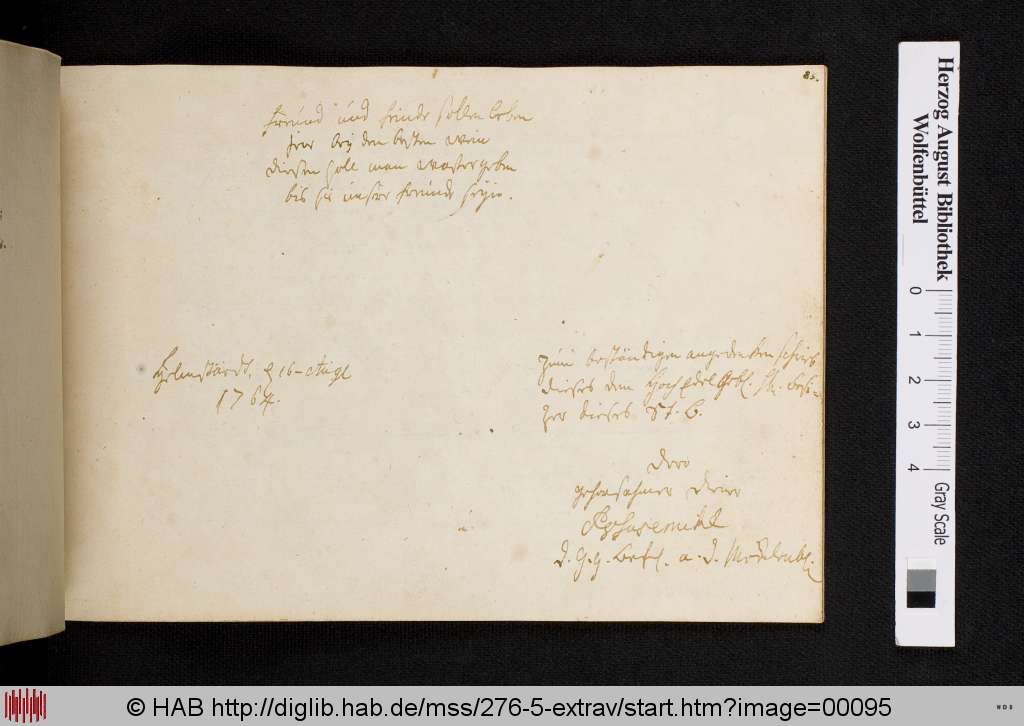 85.
freund und feinde sollen leben
jene bey den besten wein
diesen soll man wasser geben
bis sie unsre freunde seyn.
Helmstaedt, d 16 Augt
1764.
zum beständigen angedencken schrieb
dieses dem HochEdelGebl. H. besi-
zer dieses St. B.
Dero
gehorsahmer Diener
d. G. g. a. d.
Herzog August Bibliothek
Wolfenbüttel
0
1
2
3
4
Gray Scale
© HAB http://diglib.hab.de/mss/276-5-extrav/start.htm?image=00095
WDB